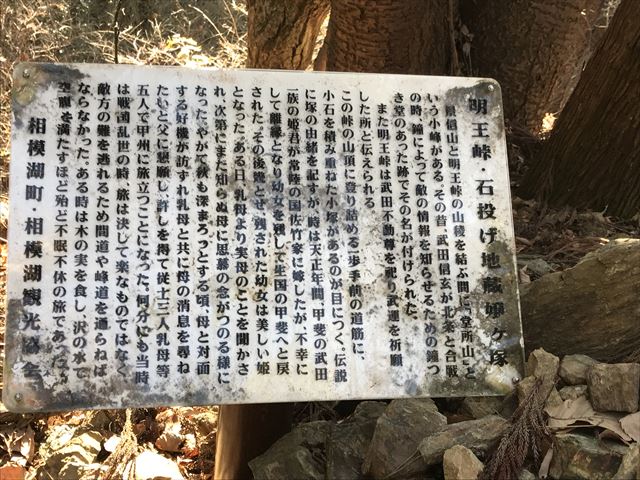 明王峠・石投げ地蔵嬢ヶ塚
景信山と明王峠の山稜を結ぶ間に「堂所山」と
いう小峰がある。その昔、武田信玄が北条と合戦
の時、鐘によって敵の情報を知らせるための鐘つ
き堂のあった跡でその名が付けられた。
また明王峠は武田不動尊を祀り武運を祈願
した所と伝えられる。
この峠の山頂に登り詰める一歩手前の道筋に、
小石を積み重ねた小塚があるのが目につく。伝説
に塚の由緒を記すが、時は天正年間、甲斐の武田
一族の姫君が常陸の国佐竹家に嫁したが、不幸に
して離縁となり幼女を残して生国の甲斐へと戻
された。その後幾とせ、残された幼女は美しい姫
となった。ある日、乳母より実母のことを聞かさ
れ、次第にまだ知らぬ母に思慕の念がつのる様に
なった。やがて秋も深まろうとする頃、母と対面
する好機が訪ずれ乳母と共に母の消息を尋ね
たいと父に懇願し、許しを得て従士三人、乳母等
五人で甲州に旅立つことになった。何分にも当時
は戦国乱世の時、旅は決して楽なものではなく、
敵方の難を逃れるため間道や峰道を通らねば
ならなかった。ある時は木の実を食し、沢の水で
空腹を満たすほど殆ど不眠不休の旅であった。
相模湖町・相模湖観光協会